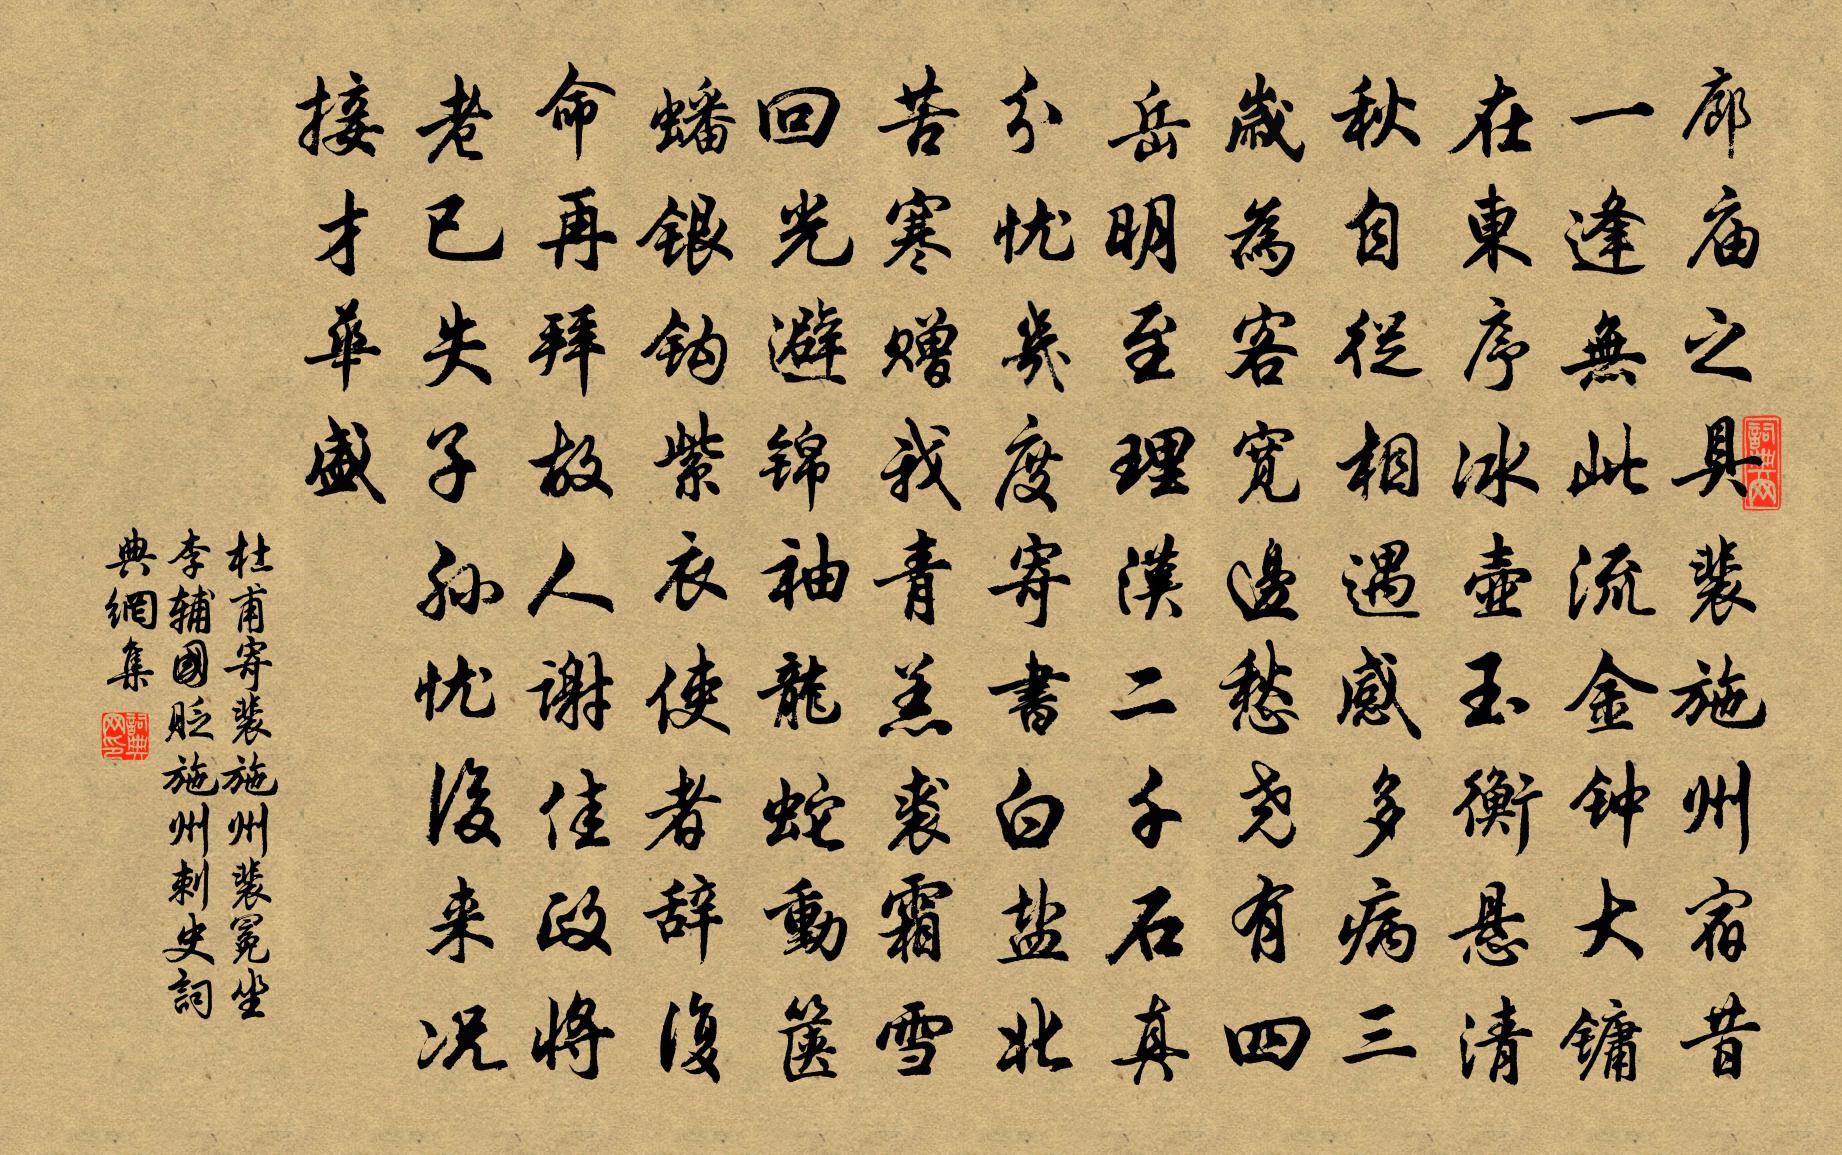 廊庙之具裴施州宿昔
一逢無此流金钟大镛
在東序冰壶玉衡悬清
秋自從相遇感多病三
歲為客寬邊愁尧有四
岳明至理漢二千石真
分忧幾度寄書白盐北
苦寒赠我青羔裘霜雪
回光避锦袖龍蛇動箧
蟠银钩紫衣使者辞復
命再拜故人谢佳政將
老已失子孙忧後来况
接才華盛
杜甫寄裴施州裴冕坐
李辅國貶施州刺史詞
典網集
詞典网
詞典网印